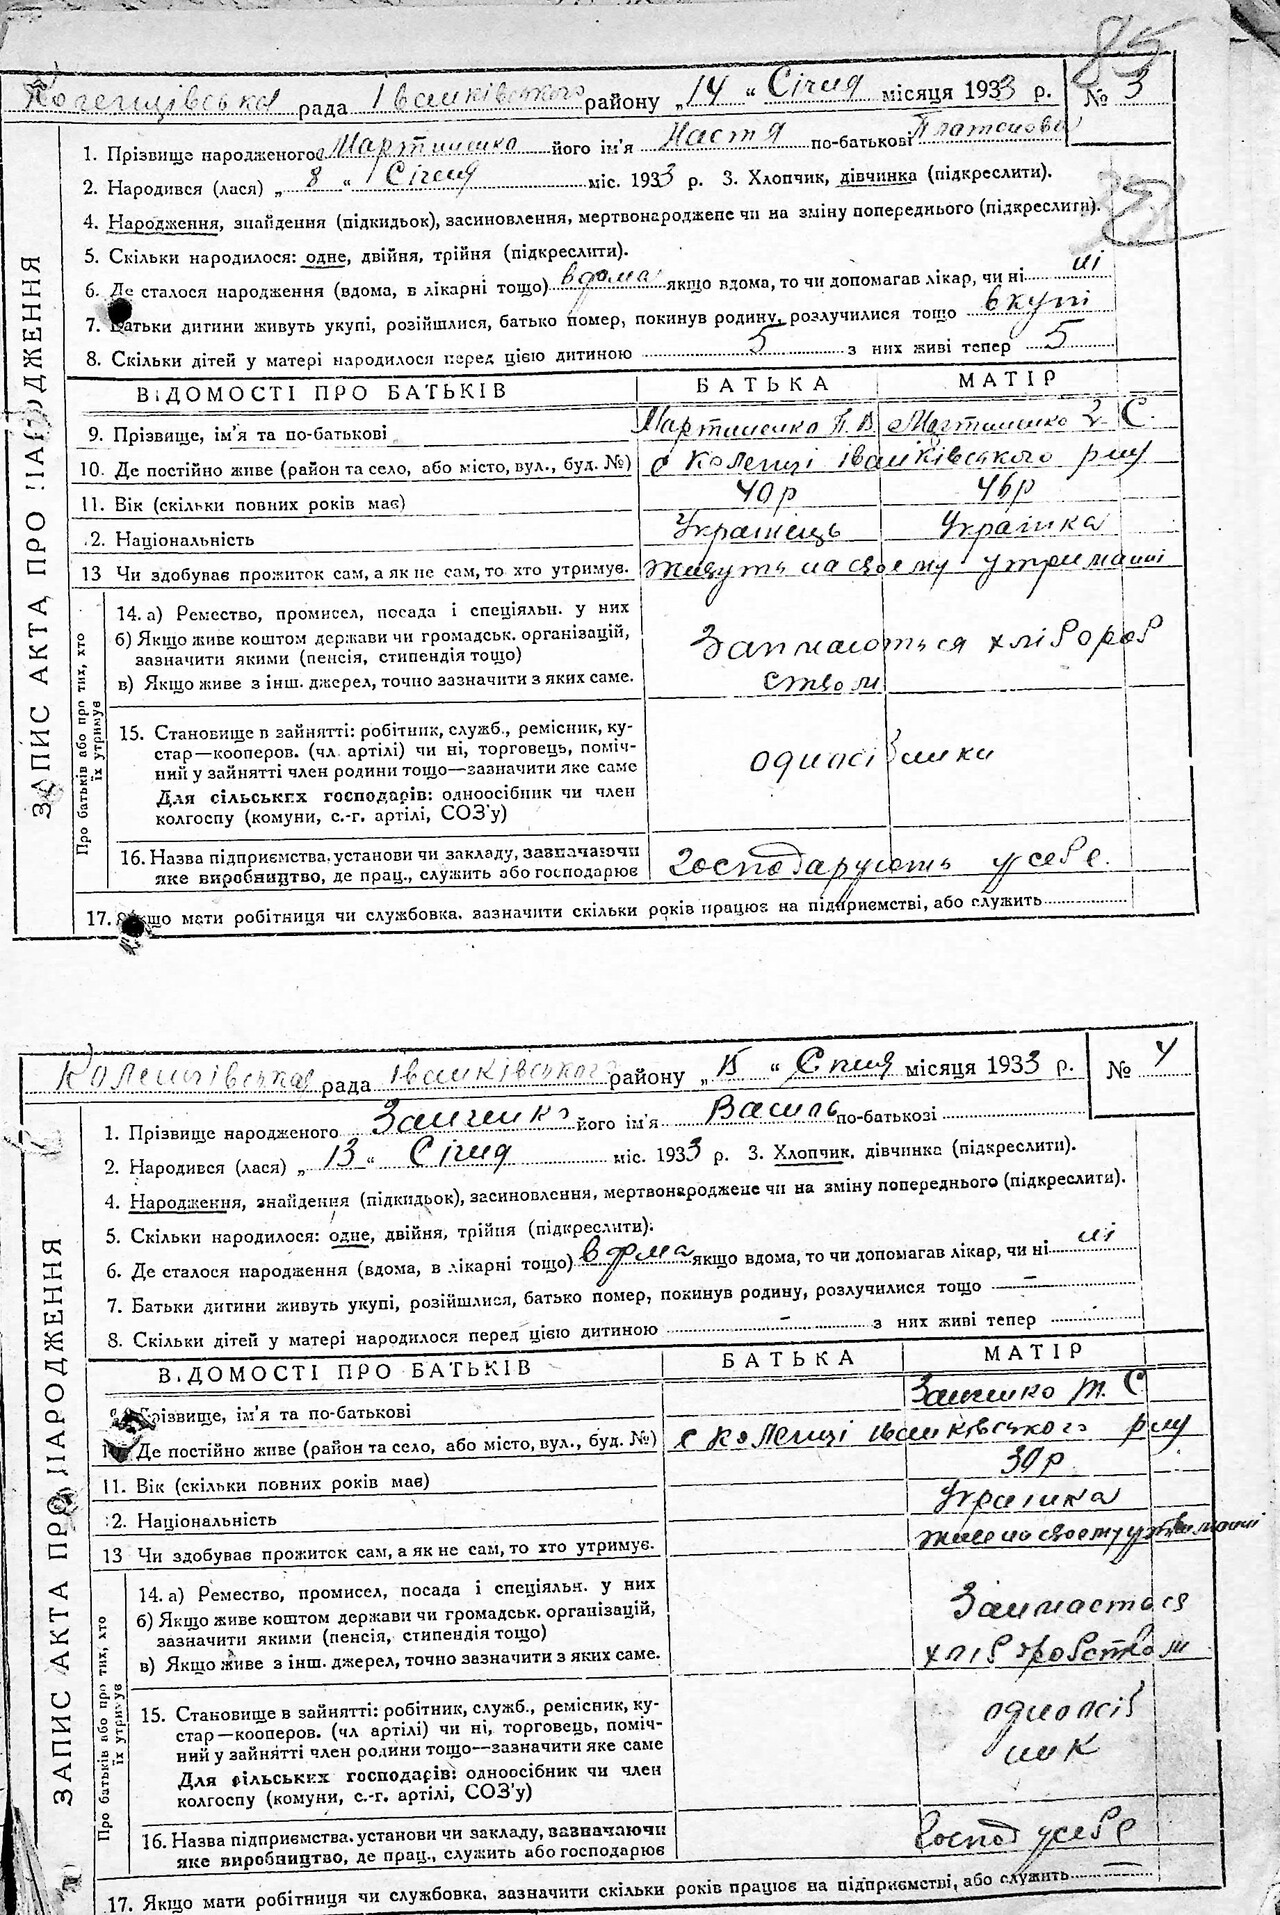 85
Коленцівська рада Іванківського району „14“ Січня місяця 1933 р. № 3
1. Прізвище народженого Мартиненко його ім'я Настя по-батькові Платонова
2. Народився (лася) „8“ Січня міс. 1933 р. 3. Хлопчик, дівчинка (підкреслити).
4. Народження, знайдення (підкидьок), засиновлення, мертвонароджене чи на зміну попереднього (підкреслити).
5. Скільки народилося: одне, двійня, трійня (підкреслити).
6. Де сталося народження (вдома, в лікарні тощо) вдома якщо вдома, то чи допомагав лікар, чи ні ні
7. Батьки дитини живуть укупі, розійшлися, батько помер, покинув родину, розлучилися тощо вкупі
8. Скільки дітей у матері народилося перед цією дитиною 5 з них живі тепер 5
ВІДОМОСТІ ПРО БАТЬКІВ БАТЬКА МАТІР
9. Прізвище, ім'я та по-батькові Мартиненко П. В. Мартиненко З. С.
10. Де постійно живе (район та село, або місто, вул., буд. №) с Коленці Іванківського рну
11. Вік (скільки повних років має) 40р 46р
12. Національність Українець Українка
13 Чи здобуває прожиток сам, а як не сам, то хто утримує. Живуть на своєму утриманні
ЗАПИС АКТА ПРО НАРОДЖЕННЯ
Про батьків або про тих, хто їх утримує
14. а) Ремество, промисел, посада і спеціяльн. у них
б) Якщо живе коштом держави чи громадськ. організацій,
зазначити якими (пенсія, стипендія тощо)
в) Якщо живе з інш. джерел, точно зазначити з яких саме.
Займаються хлібороб
ством
15. Становище в зайнятті: робітник, служб., ремісник, ку-
стар—кооперов. (чл. артілі) чи ні, торговець, поміч-
ний у зайнятті член родини тощо—зазначити яке саме
Для сільських господарів: одноосібник чи член
колгоспу (комуни, с.-г. артілі, СОЗ'у)
одноосібники
16. Назва підприємства, установи чи закладу, зазначаючи
яке виробництво, де прац., служить або господарює Господарують у себе.
17. Якщо мати робітниця чи службовка, зазначити скільки років працює на підприємстві, або служить
Коленцівська рада Іванківського району „15“ Січня місяця 1933 р. № 4
1. Прізвище народженого Заиченко його ім'я Василь по-батькові
2. Народився (лася) „13“ Січня міс. 1933 р. 3. Хлопчик, дівчинка (підкреслити).
4. Народження, знайдення (підкидьок), засиновлення, мертвонароджене чи на зміну попереднього (підкреслити).
5. Скільки народилося: одне, двійня, трійня (підкреслити).
6. Де сталося народження (вдома, в лікарні тощо) вдома якщо вдома, то чи допомагав лікар, чи ні ні
7. Батьки дитини живуть укупі, розійшлися, батько помер, покинув родину, розлучилися тощо —
8. Скільки дітей у матері народилося перед цією дитиною - з них живі тепер
ВІДОМОСТІ ПРО БАТЬКІВ БАТЬКА МАТІР
9. Прізвище, ім'я та по-батькові Т. С.
10. Де постійно живе (район та село, або місто, вул., буд. №) с Коленці Іванківського рну
11. Вік (скільки повних років має) 30р
12. Національність Українка
13 Чи здобуває прожиток сам, а як не сам, то хто утримує. Живе на своєму утриманні
ЗАПИС АКТА ПРО НАРОДЖЕННЯ
Про батьків або про тих, хто їх утримує
14. а) Ремество, промисел, посада і спеціяльн. у них
б) Якщо живе коштом держави чи громадськ. організацій,
зазначити якими (пенсія, стипендія тощо)
в) Якщо живе з інш. джерел, точно зазначити з яких саме.
Займається
хліборобством
15. Становище в зайнятті: робітник, служб., ремісник, ку-
стар—кооперов. (чл артілі) чи ні, торговець, поміч-
ний у зайнятті член родини тощо—зазначити яке саме
Для сільських господарів: одноосібник чи член
колгоспу (комуни, с.-г. артілі, СОЗ'у)
одноосіб
ник
16. Назва підприємства, установи чи закладу, зазначаючи
яке виробництво, де прац., служить або господарює Господ у себе
17. Якщо мати робітниця чи службовка, зазначити скільки років працює на підприємстві, або служить —